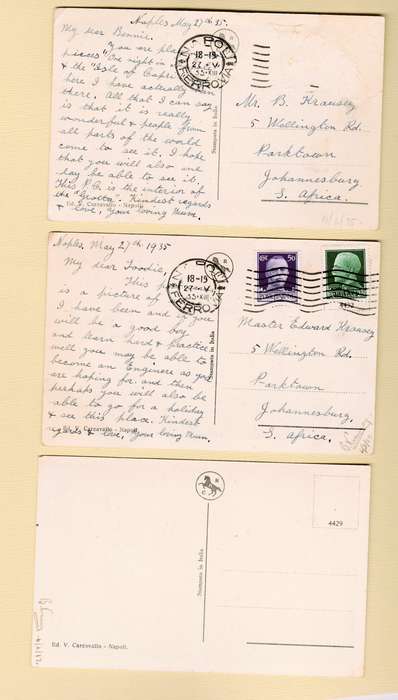 Naples May 27th 35.
My dear Bennie.
"You are play
pieces" One night in
& the "Isle of Capri
here I have actually been
there. All that I can say
is that it is really
wonderful & people from
all parts of the world
come to see it. I hope
that you will also one
day be able to see it
This P.C. is the interior of
the "Grotto". Kindest regards
& love, Your loving Mum.
Ed. V. Carcavallo - Napoli.
NAPOLI
18-19
27·V
35·XIII
FERROVIA
Stampato in Italia
Mr. B. Krausey
5 Wellington Rd.
Parktown
Johannesburg.
S. Africa.
Naples, May 27th 1935
My dear Goodie,
This p
is a picture of
I have been and if you
will be a good boy
and learn hard & practice
well you may be able to
become an Engineer as you
are hoping for and then
perhaps you will also be
able to go for a holiday
& see this place. Kindest
regards & love, your loving Mum.
Ed. V. Carcavallo - Napoli.
NAPOLI
18-19
27·V
35·XIII
FERROVIA
Stampato in Italia
50
Master Edward Krausey
5 Wellington Rd.
Parktown
Johannesburg.
S. Africa.
4429
Stampato in Italia
Ed. V. Carcavallo - Napoli.